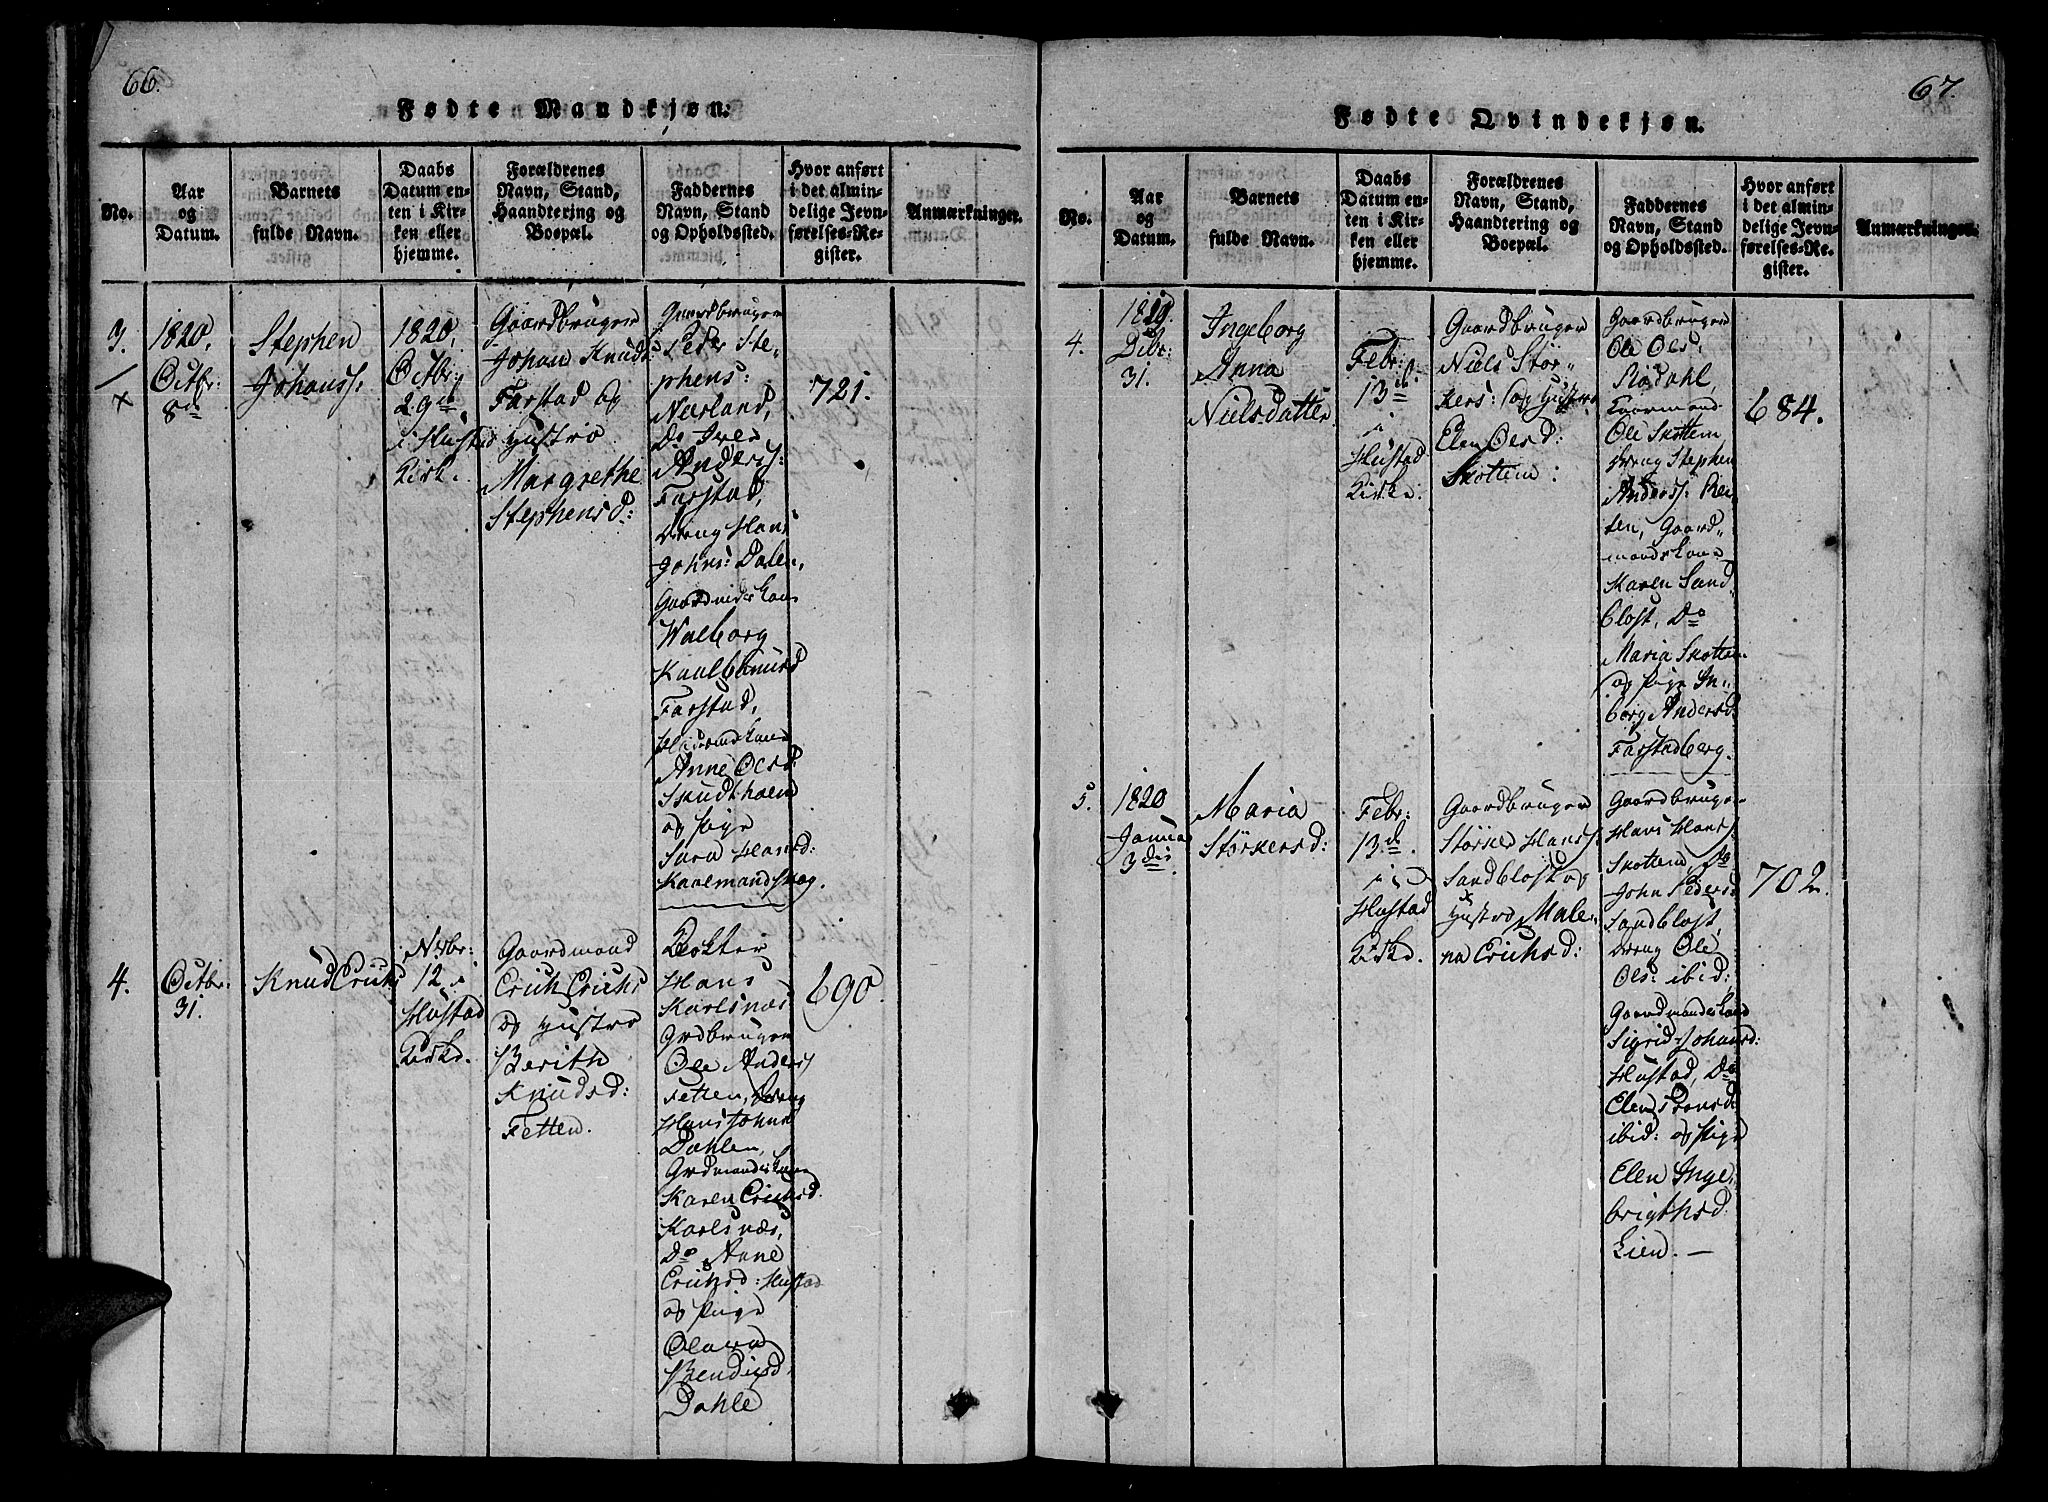 66.
Fødte Mandkjøn.
No.
Aar
og
Datum.
Barnets
fulde Navn.
Daabs
Datum en-
ten i Kir-
ken eller
hjemme.
Forældrenes
Navn, Stand,
Haandtering og
Boepæl.
Faddernes
Navn, Stand
og Opholdssted.
Hvor anført
i det almin-
delige Jevn-
førelses-Re-
gister.
Anmærkninger.
3.
1820,
Octbr:
8de
Stephen
Johanss:
1820,
Octbr:
29de
i Hustad
Kirk.
Gaardbruger
Johan Knuds:
Farstad og
Hustro
Margrethe
Stephensd:
Gaardbruger
Peder Ste-
phens:
Nerland,
Do Iver
Anderss:
Farstad,
Dreng Hans
Johns: Dalen,
Gaardmdskone
Walborg
Farstad,
Anne Olsd:
og Pige
Sara Hansd:
721.
4.
Octbr:
31.
Knud Erichs
Novbr:
12. i
Hustad
Kirke.
Gaardmand
Erich Erichs
og Hustro
Berith
Knudsd:
Fetten.
Hans
Karlsnæs
Grdbruger
Ole Anders
Fetten, Dreng
Hans Johns
Dahlen,
Grdmandskone
Karen Erichsd.
Karlsnæs,
Do Anne
Erichsd: Hustad
og Pige
Olava
Bendixsd.
Dahle
690.
67.
Fødte Qvindekjøn.
No.
Aar
og
Datum.
Barnets
fulde Navn.
Daabs
Datum en-
ten i Kir-
ken eller
hjemme.
Forældrenes
Navn, Stand,
Haandtering og
Boepæl.
Faddernes
Navn, Stand
og Opholdssted.
Hvor anført
i det almin-
delige Jevn-
førelses-Re-
gister.
Anmærkninger.
4.
1819.
Dcbr:
31.
Ingeborg
Anna
Nielsdatter
Febr:
13de
i
Hustad
Kirke.
Gaardbruger
Niels Stör-
kers: og Hustro
Elen Olsd:
Skottem:
Gaardbruger
Ole Ols:
Rødahl,
Ole Skottem
Dreng Stephen
Anderss: Rei-
ten, Gaard-
mandskone
Karen Sand-
blost, Do
Maria Skottem
og Pige In-
borg Andersd.
Farstadberg.
684.
5.
1820
Januar
3die.
Maria
Störkersd:
Febr:
13de.
i
Hustad
Kirke.
Gaardbruger
Störker Hanss.
Sandblost og
Hustro Male-
na Erichsd:
Gaardbruger
Hans Hanss.
Skottem, Do
John Peders
Sandblost,
Dreng Ole
Ols: ibid:
Gaardmandskone
Sigrid Johansd:
Hustad, Do
ibid: og Pige
Elen Inge-
brigthsd:
Lien. —
702.